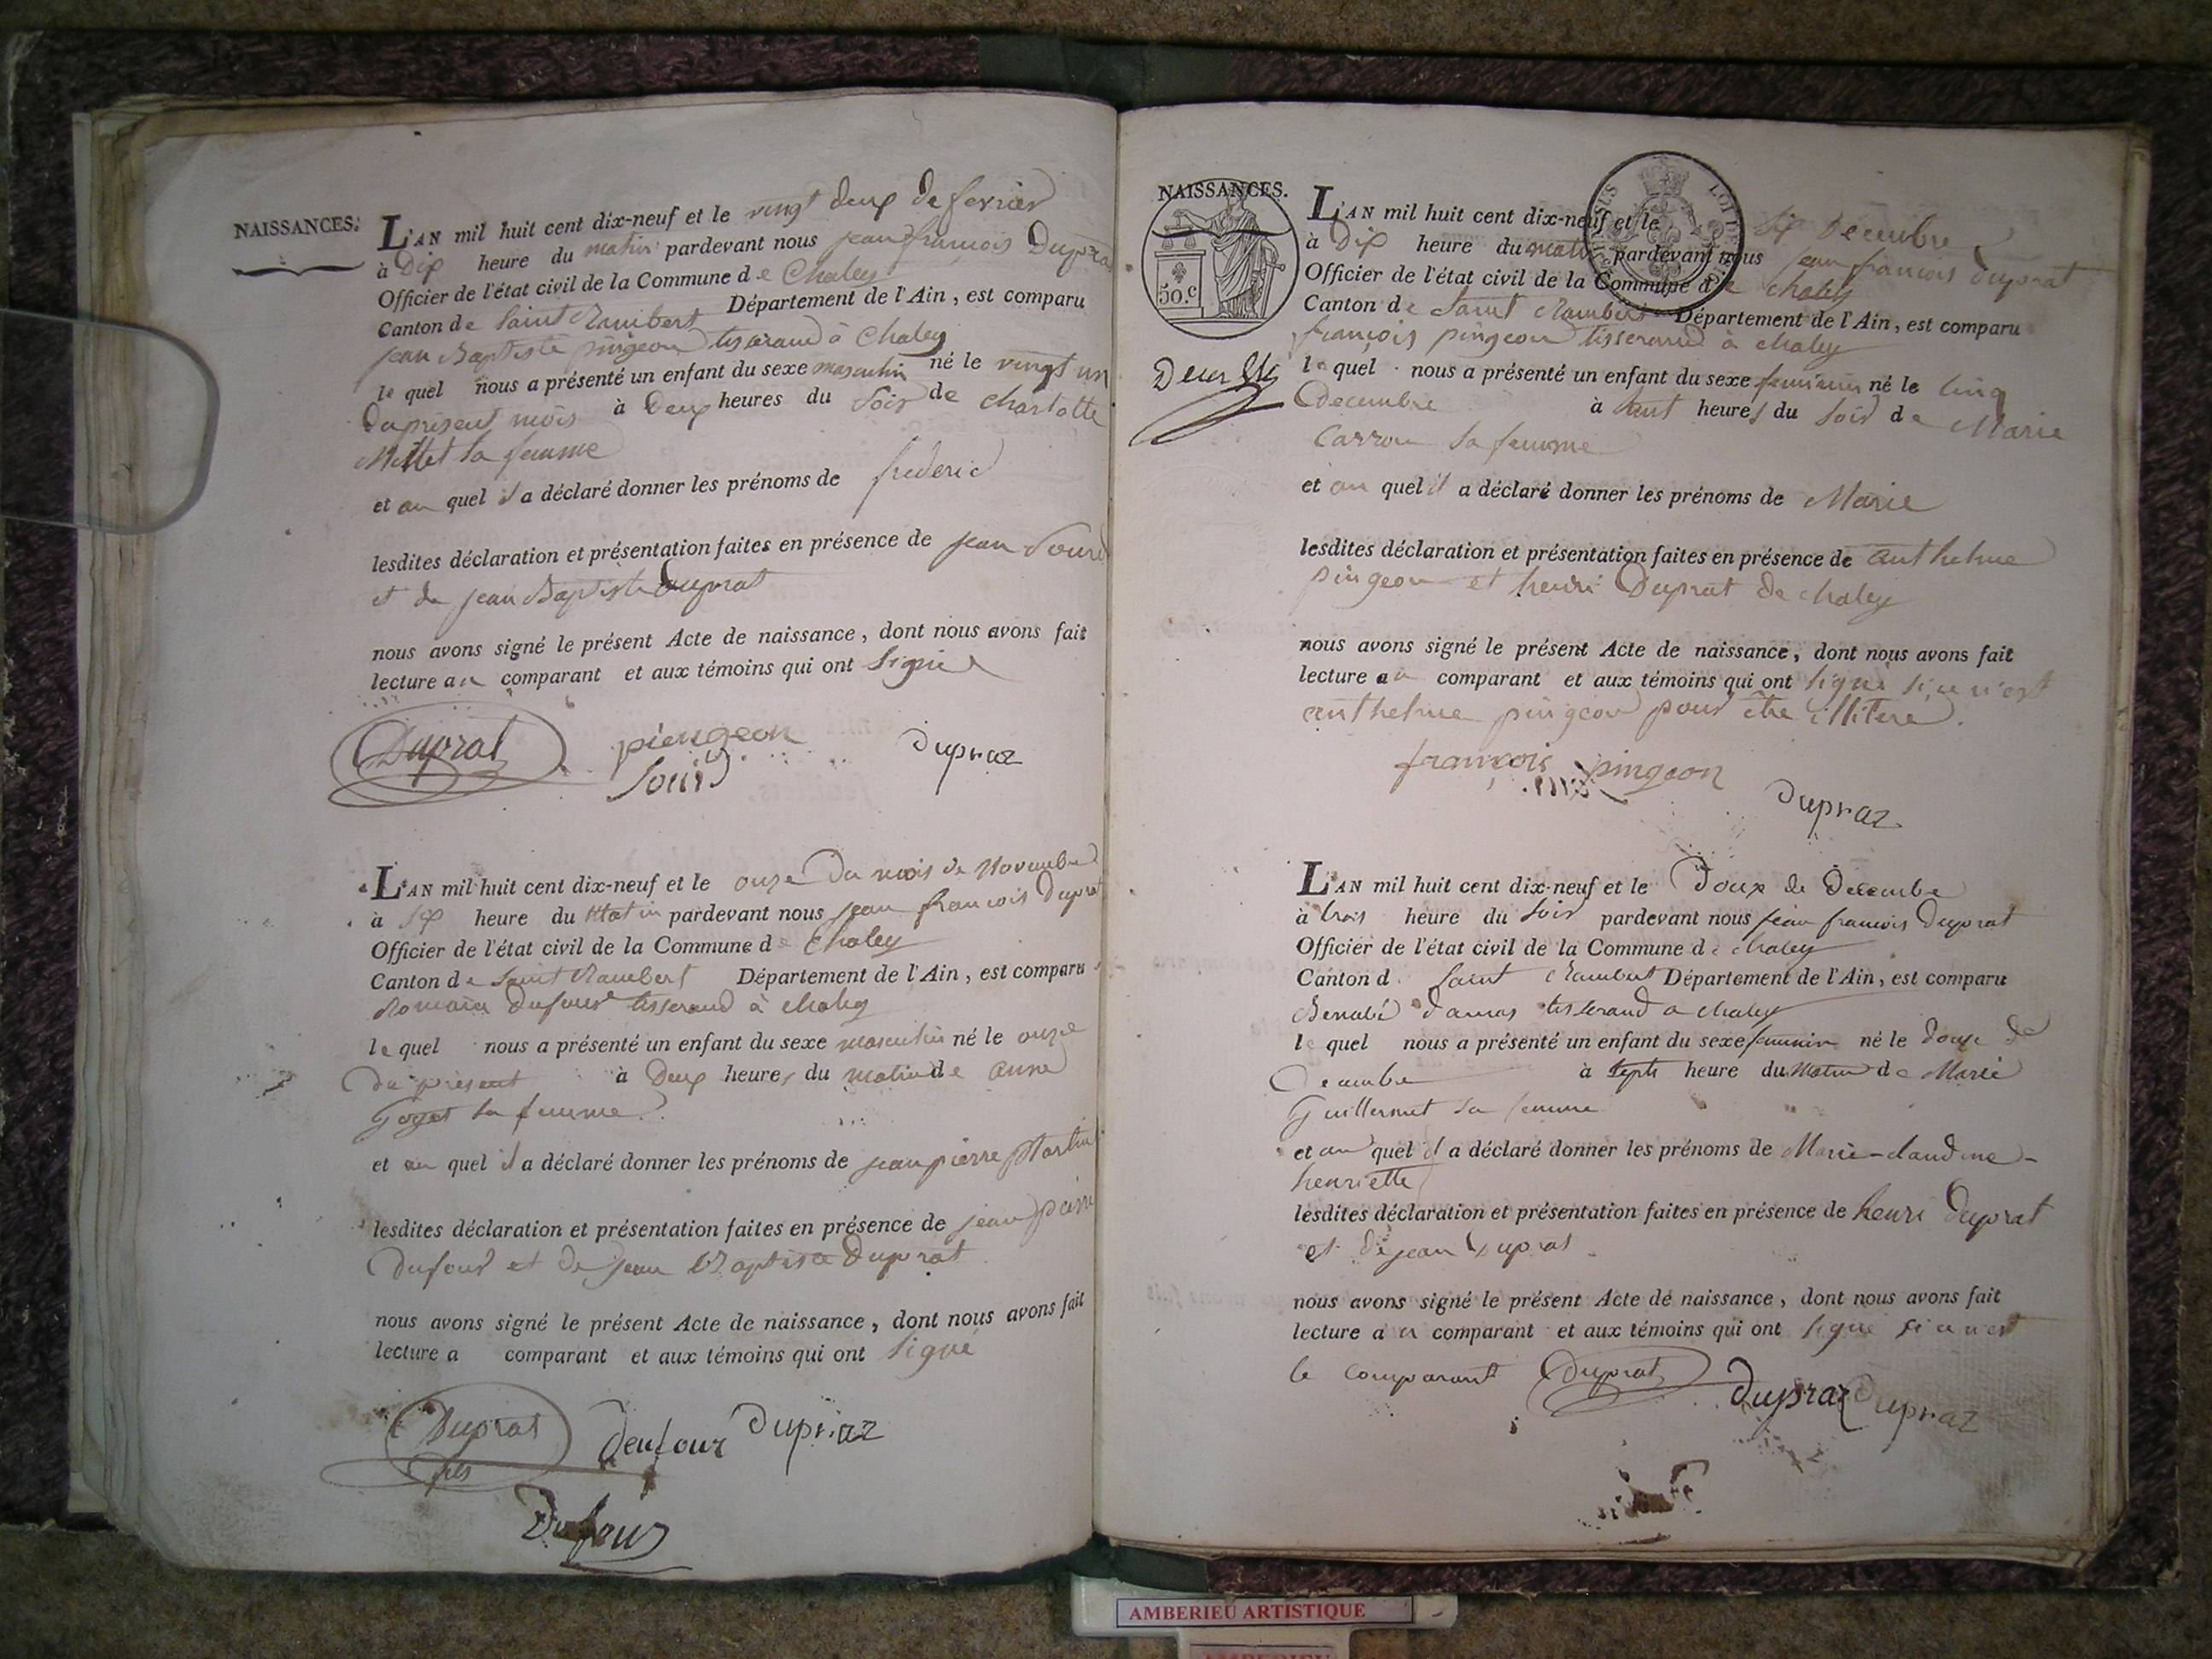 NAISSANCES.
L'AN mil huit cent dix-neuf et le vingt deux de fevrier
à Dix heure du matin pardevant nous jean françois Duprat
Officier de l'état civil de la Commune de Chaley
Canton de Saint Rambert Département de l'Ain, est comparu
jean Baptiste pingeon tisserand à Chaley
le quel nous a présenté un enfant du sexe masculin né le vingt un
du présent mois à Deux heures du Soir de charlotte
Millet sa femme
et au quel il a déclaré donner les prénoms de frederic
lesdites déclaration et présentation faites en présence de jean
et de jean Baptiste Duprat
nous avons signé le présent Acte de naissance, dont nous avons fait
lecture au comparant et aux témoins qui ont signé
Duprat piengeon Dupraz
L'AN mil huit cent dix-neuf et le onze Du mois de Novembre
à Six heure du Matin pardevant nous jean francois Duprat
Officier de l'état civil de la Commune de Chaley
Canton de Saint Rambert Département de l'Ain, est comparu
Romain Dufour tisserand à chaley
le quel nous a présenté un enfant du sexe masculin né le onze
du présent à Deux heures du matin de anne
Goyet sa femme
et au quel il a déclaré donner les prénoms de jean pierre Martin
lesdites déclaration et présentation faites en présence de jean pierre
Dufour et de Jean Baptiste Duprat
nous avons signé le présent Acte de naissance, dont nous avons fait
lecture a comparant et aux témoins qui ont signé
Duprat deufour Dupraz
fils
Dufour
NAISSANCES.
50.c
L'AN mil huit cent dix-neuf et le Six Decembre
à Dix heure du matin pardevant nous jean francois Duprat
Officier de l'état civil de la Commune de chaley
Canton de Saint Rambert Département de l'Ain, est comparu
françois pingeon tisserand à chaley
le quel nous a présenté un enfant du sexe feminin né le cinq
Decembre à huit heures du soir de Marie
Carron sa femme
et au quel il a déclaré donner les prénoms de Marie
lesdites déclaration et présentation faites en présence de anthelme
pingeon et henri Duprat de chaley
nous avons signé le présent Acte de naissance, dont nous avons fait
lecture au comparant et aux témoins qui ont signé si ce n'est
anthelme pingeon pour être illitéré.
françois pingeon
Dupraz
L'AN mil huit cent dix-neuf et le Douze de Decembre
à trois heure du soir pardevant nous jean francois Duprat
Officier de l'état civil de la Commune de chaley
Canton d Saint Rambert Département de l'Ain, est comparu
tisserand a chaley
le quel nous a présenté un enfant du sexe feminin né le douze de
Decembre à septs heure du Matin de Marie
Guillermet sa femme
et au quel il a déclaré donner les prénoms de Marie-claudine-
henriette
lesdites déclaration et présentation faites en présence de henri Duprat
et de jean Duprat
nous avons signé le présent Acte de naissance, dont nous avons fait
lecture au comparant et aux témoins qui ont signé si ce n'est
le comparant Duprat Dupraz Dupraz
AMBERIEU ARTISTIQUE